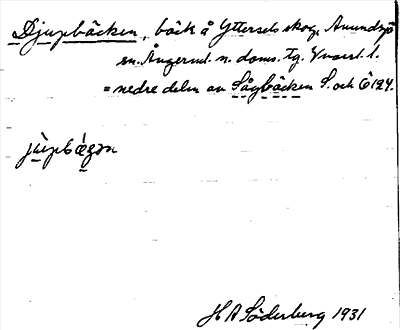 Djupbäcken, bäck å Ytterselsskog, Anundsjö
sn. Ångerml. n. doms. tg. Vnorrl. l.
= nedre delen av Sågbäcken S. och Ö 124.
jùpbǽgən
H A Söderberg 1931